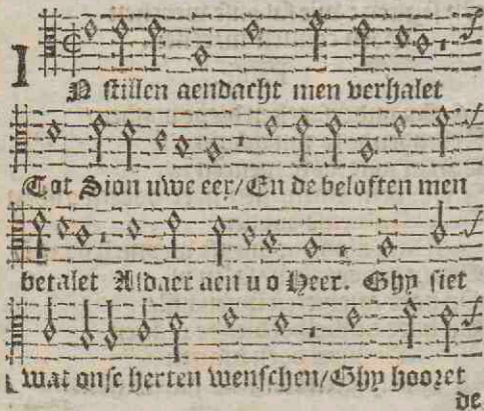 IN stillen aendacht men verhalet
Tot Sion uwe eer/En de beloften men
betalet Aldaer aen u o Heer. Ghy siet
wat onse herten wenschen/Ghy hooret
de